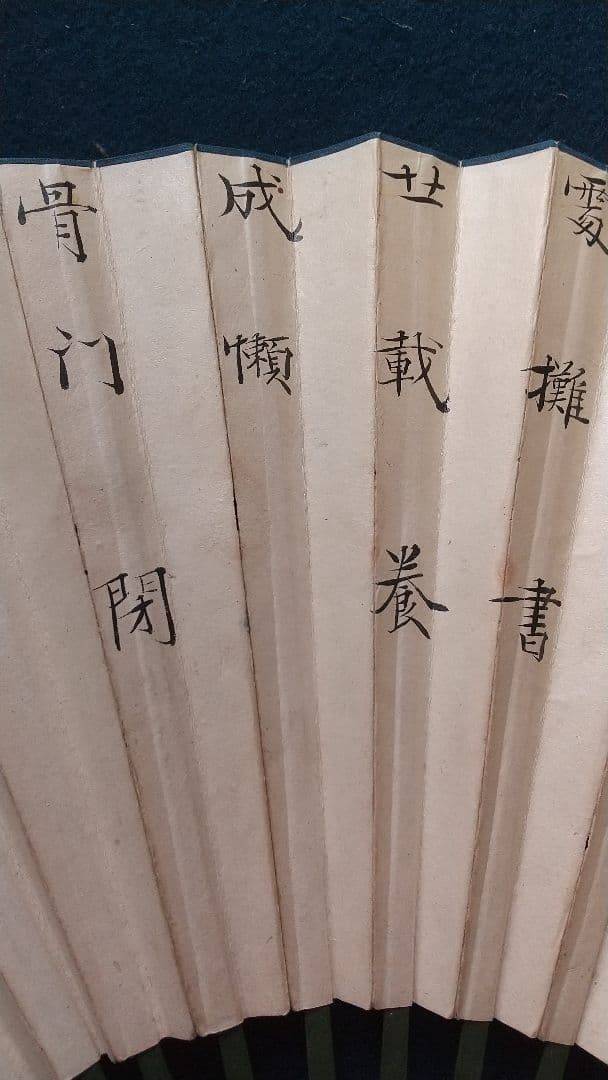 處攤書
廿載養
成懶
骨门閉